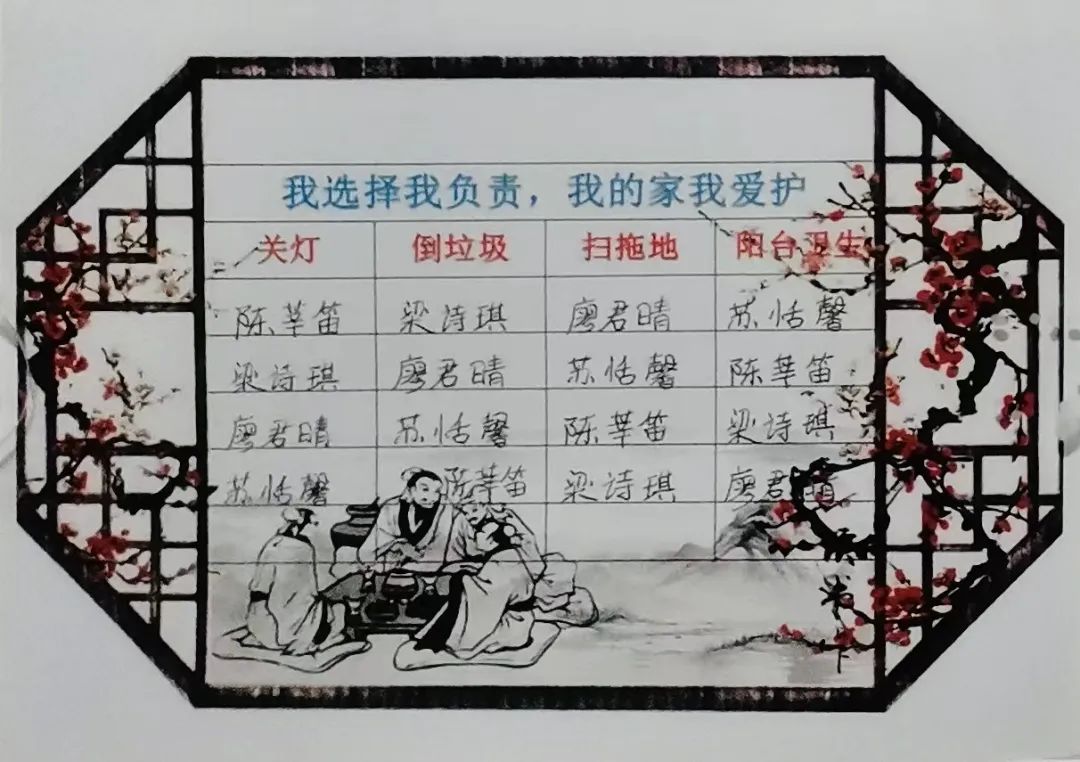 我选择我负责，我的家我爱护
关灯 倒垃圾 扫拖地 阳台卫生
陈莘笛 梁诗琪 廖君晴 苏恬馨
梁诗琪 廖君晴 苏恬馨 陈莘笛
廖君晴 苏恬馨 陈莘笛 梁诗琪
苏恬馨 陈莘笛 梁诗琪 廖君晴